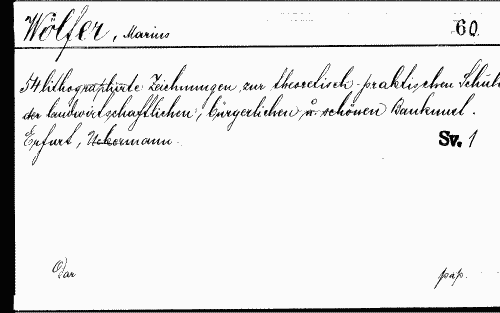 Wölfer, Marius 60
54 lithographirte Zeichnungen zur theoretisch-praktischen Schule
der landwirtschaftlichen, bürgerlichen u. schönen Baukunst.
Erfurt, Uckermann. Sv. 1
Dar pap.